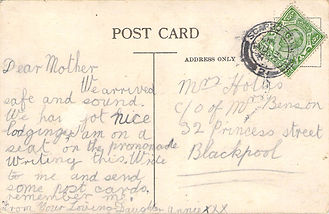 POST CARD
ADDRESS ONLY
Dear Mother
We arrived
safe and sound.
We has got nice
lodgings I am on a
seat on the promonade
writing this. Write
to me and send
some post cards.
remember me
From Your Loving Daughter Annie XXX
Mrs Holds
C/O of Mrs Benson
32 Princess street
Blackpool